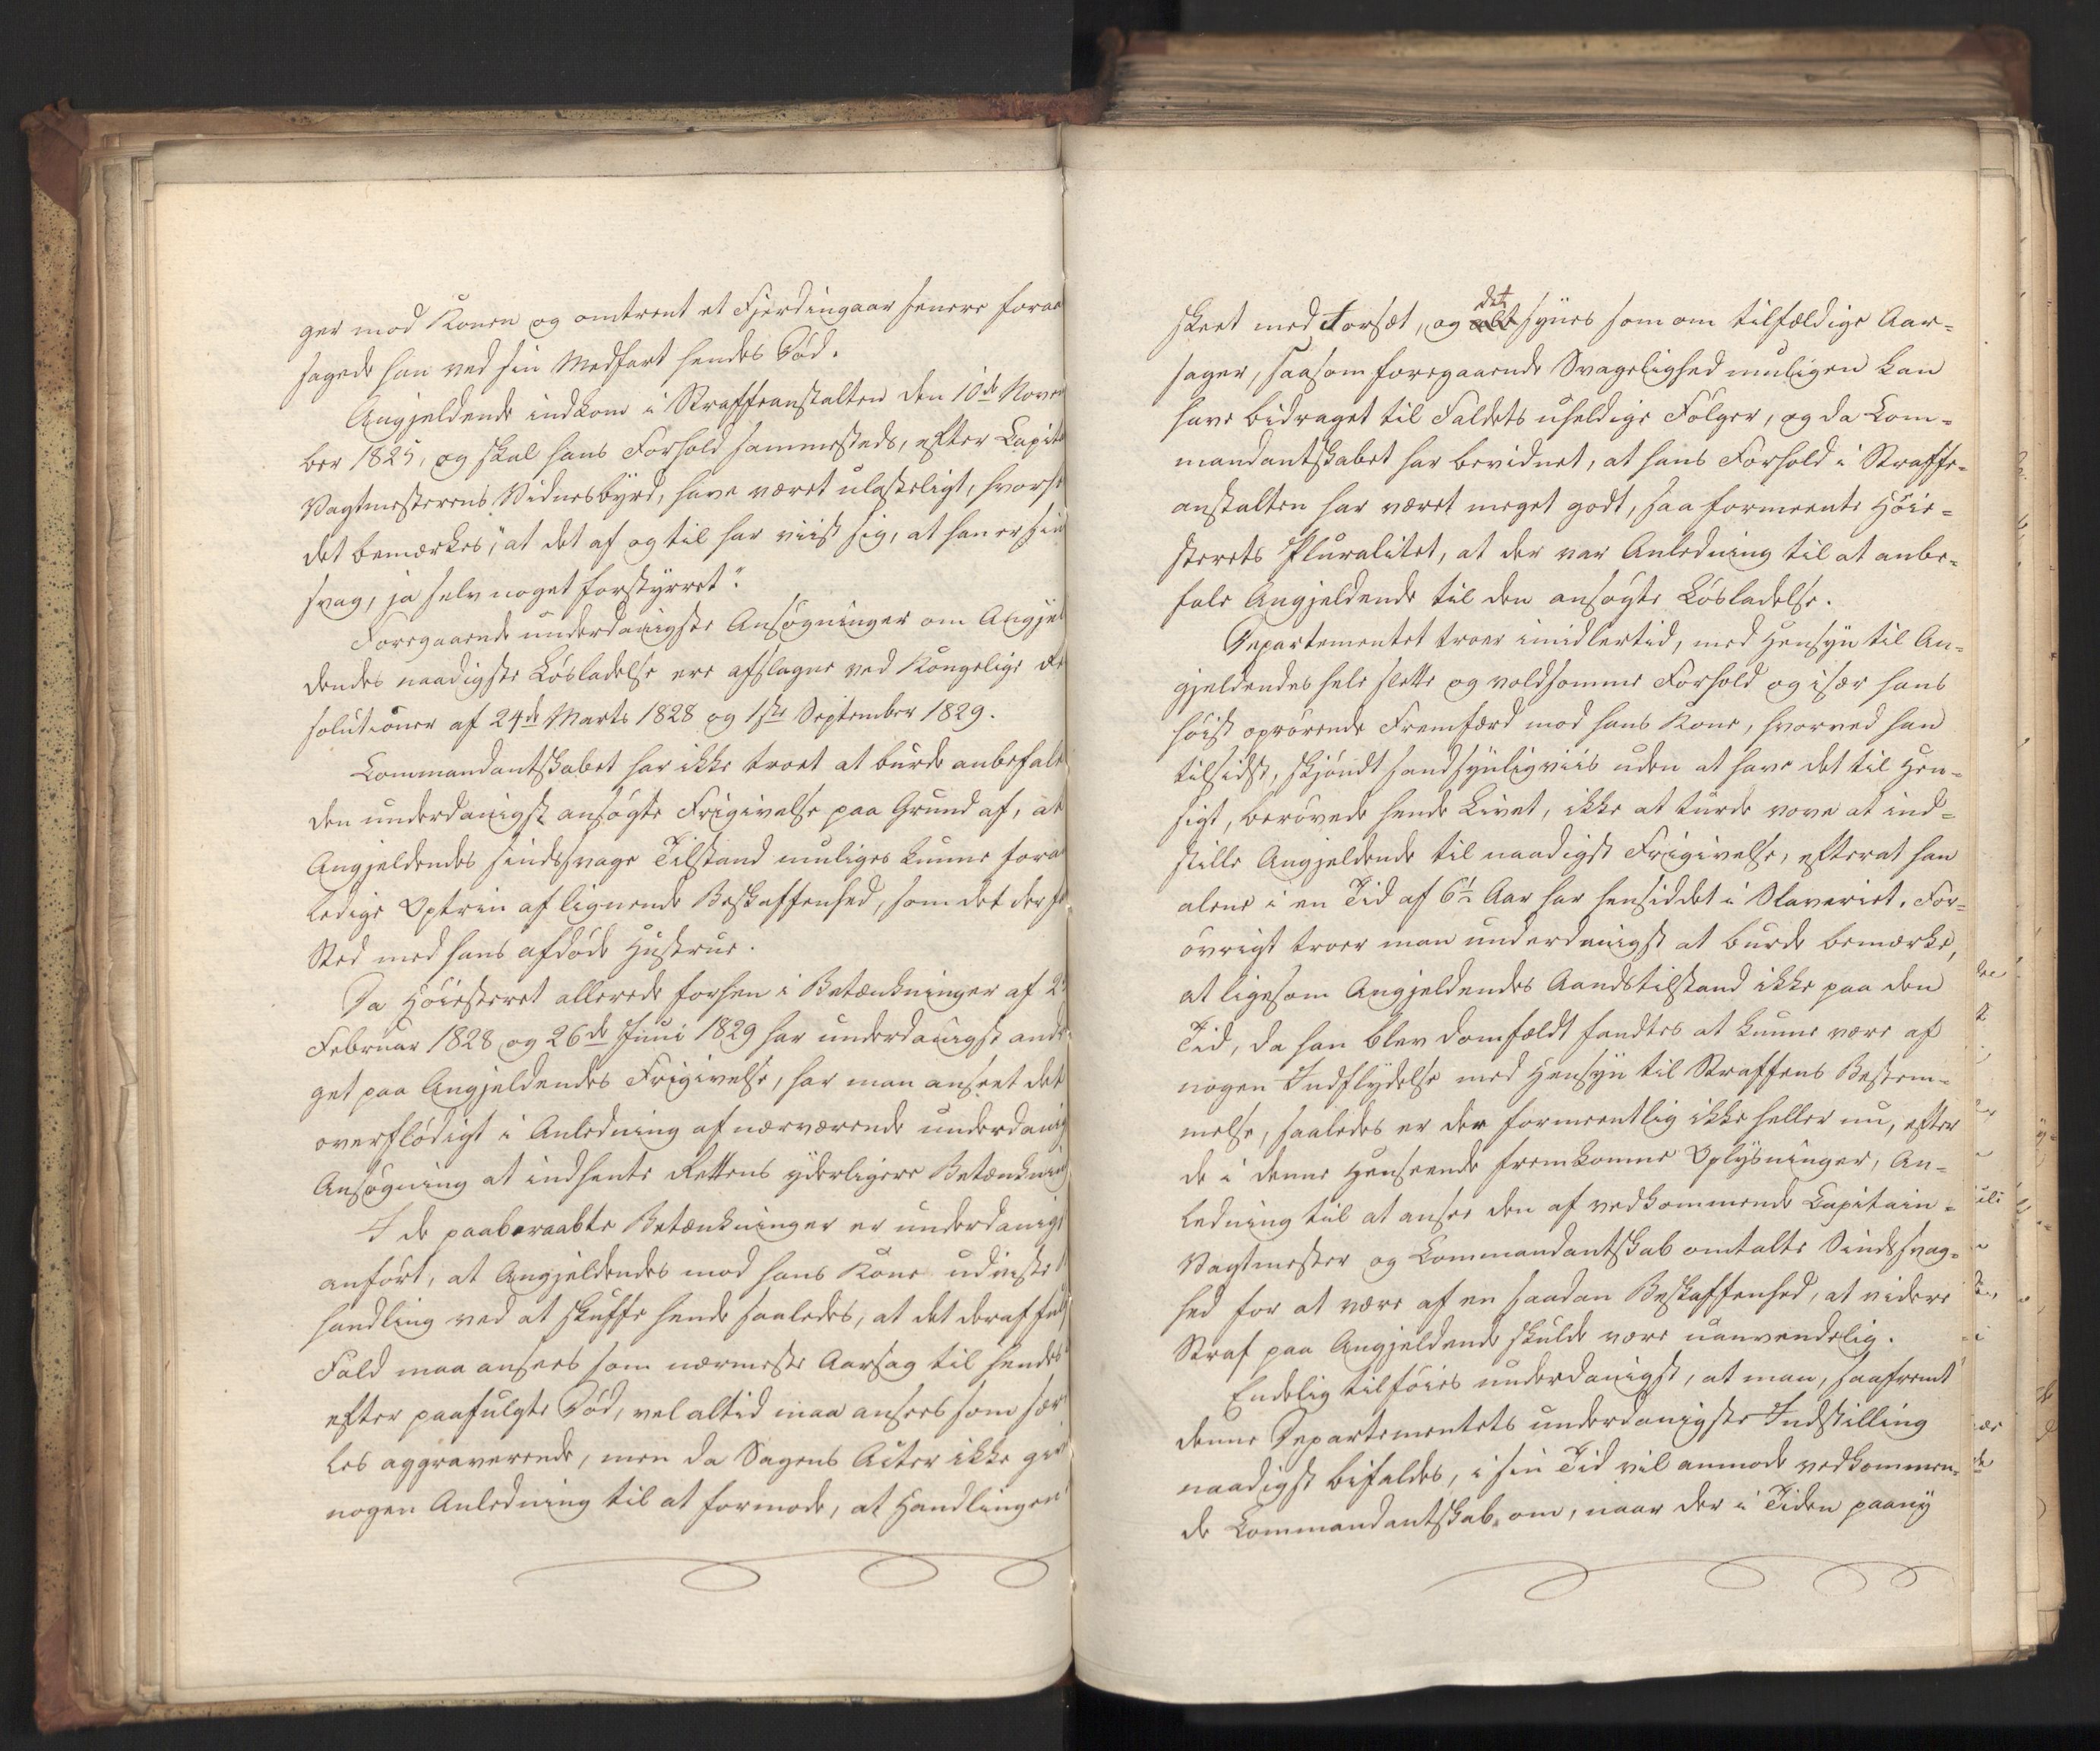 ger mod Konen og omtrent et Fjerdingaar senere foraa
sagede han ved sin Medfart hendes Død.
Angjeldende indkom i Straffeanstalten den 10de Novem
ber 1825, og skal hans Forhold sammesteds, efter Capit
Vagtmesterens Vidnesbyrd, have været ulasteligt, hvorhos
det bemærkes, "at det af og til har viist sig, at han er sind
svag, ja selv noget forstyrret".
Foregaaende underdanigste Ansøgninger om Angjel
dendes naadigste Løsladelse ere afslagne ved Kongelige Re
solutioner af 24de Marts 1828 og 1ste September 1829.
Commandantskabet har ikke troet at burde anbefale
den underdanigst ansøgte Frigivelse paa Grund af, at
Angjeldendes sindssvage Tilstand muliges kunne foran
ledige Optrin af lignende Beskaffenhed, som det der fa
Sted med hans afdøde Hustrue.
Da Høiesteret allerede forhen i Betænkninger af 2
Februar 1828 og 26de Juni 1829 har underdanigst andra
get paa Angjeldendes Frigivelse, har man anseet det
overflødigt i Anledning af nærværende underdanig
Ansøgning at indhente Rettens yderligere Betænkning
I de paaberaabte Betænkninger er underdanigst
anført, at Angjeldendes mod hans Kone udviste
handling ved at skuffe hende saaledes, at det deraf fulg
Fald maa ansees som nærmeste Aarsag til hendes
efter paafulgte Død, vel altid maa ansees som sær
les aggraverende, men da Sagens Acter ikke give
nogen Anledning til at formode, at Handlingen
skeet med Forsæt, og det synes som om tilfældige Aar-
sager, saasom foregaaende Svagelighed muligen kan
have bidraget til Faldets uheldige Følger, og da Com-
mandantskabet har bevidnet, at hans Forhold i Straffe-
anstalten har været meget godt, saa formeente Høie-
sterets Pluralitet, at der var Anledning til at anbe-
fale Angjeldende til den ansøgte Løsladelse.
Departementet troer imidlertid, med Hensyn til An-
gjeldendes hele slette og voldsomme Forhold og især hans
høist oprørende Fremfærd mod hans Kone, hvorved han
tilsidst, skjøndt sandsynligviis uden at have det til Hen-
sigt, berøvede hende Livet, ikke at turde vove at ind-
stille Angjeldende til naadigst Frigivelse, efterat han
alene i en Tid af 6½ Aar har hensiddet i Slaveriet. For-
øvrigt troer man underdanigst at burde bemærke,
at ligesom Angjeldendes Aandstilstand ikke paa den
Tid, da han blev domfældt fandtes at kunne være af
nogen Indflydelse med Hensyn til Straffens Bestem-
melse, saaledes er der formeentlig ikke heller nu, efter
de i denne Henseende fremkomne Oplysninger, An-
ledning til at ansee den af vedkommende Capitain-
Vagtmester og Commandantskab omtalte Sindssvag-
hed for at være af en saadan Beskaffenhed, at videre
Straf paa Angjeldende skulde være uanvendelig.
Endelig tilføies underdanigst, at man, saafremt
denne Departementets underdanigste Indstilling
naadigst bifaldes, i sin Tid vil anmode vedkommen-
de Commandantskab om, naar der i Tiden paany